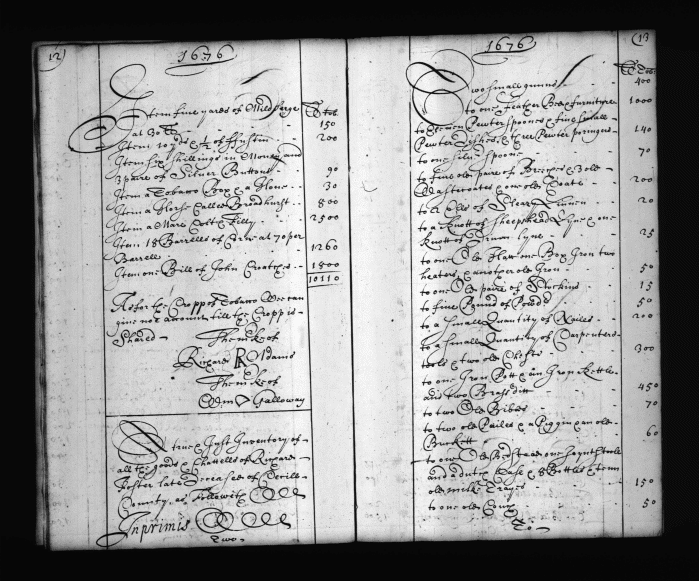 12
1676
Item five yards of
at 30
150
Item 10 yds & ½ of
200
Item Six Shillings in Money and
3 paire of Silver Buttons
90
Item a Tobacco Box & a
30
Item a Horse Called Broadhurst
800
Item a Mare Colt & Filly
2500
Item 18 Barrells of Corn at 70 per
Barrell
1260
Item one Bill of John
1800
10110
As for the Cropp of Tobacco Wee can
give noe account till the Cropp is
Shared
The mke of
Richard R Adams
The mke of
Edm Galloway
A true & Just Inventory of
all the goods & Chattells of Richard
late Deceased of
County as followeth
Inprimis
Two
13
1676
Two small gunns
400
to one Feather Bed & furniture
1000
to Pewter spoones & five small
Pewter Dishes & three Pewter porringrs
140
to one silver spoone
70
to five old paire of Breeches & 3 old
Wastcoates & one old Coate
200
to Ells of Linnen
20
to a knott of Sheepshead Lyne & one
knott of Drum lyne
25
to one Old Flatt one Box Iron two
heaters & another old Iron
50
to one Old paire of Stockins
15
to five Pound of Powdr
50
to a small Quantity of Nailes
200
to a small Quantity of Carpenters
tools & two old Chests
300
to one Iron Pott & an Iron Kettle
and two Brass ditto
450
to two Old Bibles
70
to two old Pailes & a Piggin & an old
Buckett
60
to one Old Bedstead one
and a Case & 8 Bottles &
old milk Trayes
150
to one old
50
To